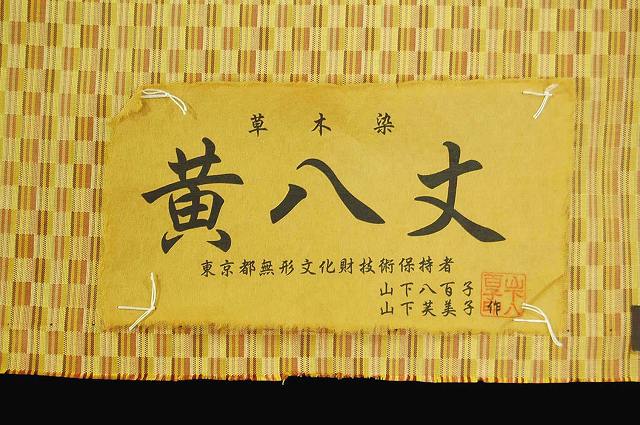 草木染
黄八丈
東京都無形文化財技術保持者
山下八百子
山下芙美子作